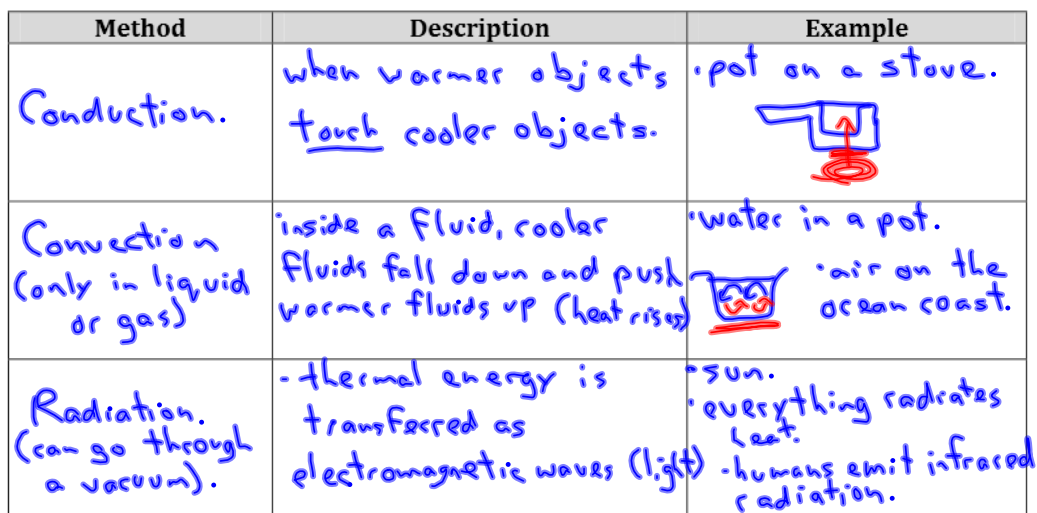 Method Description Example
Conduction.
when warmer objects
touch cooler objects.
·pot on a stove.
Convection
(only in liquid
or gas)
·inside a fluid, cooler
fluids fall down and push
warmer fluids up (heat rises)
·water in a pot.
·air on the
ocean coast.
Radiation.
(can go through
a vacuum).
-thermal energy is
transferred as
electromagnetic waves (light)
·sun.
·everything radiates
heat.
-humans emit infrared
radiation.